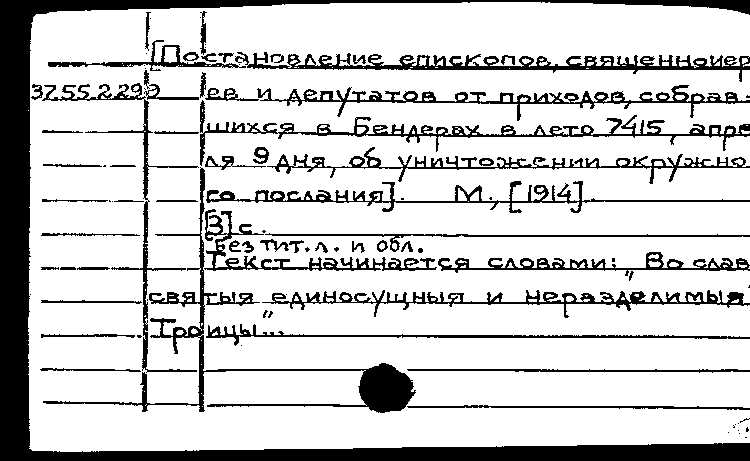 [Постановление епископов, священноиер
37.55.2.299 ев и депутатов от приходов, собрав-
шихся в Бендерах в лето 7415, апре
ля 9 дня, об уничтожении окружно
го послания]. М., [1914].
[3] с.
Без тит. л. и обл.
Текст начинается словами: "Во слав
святыя единосущныя и неразделимыя
Троицы"...